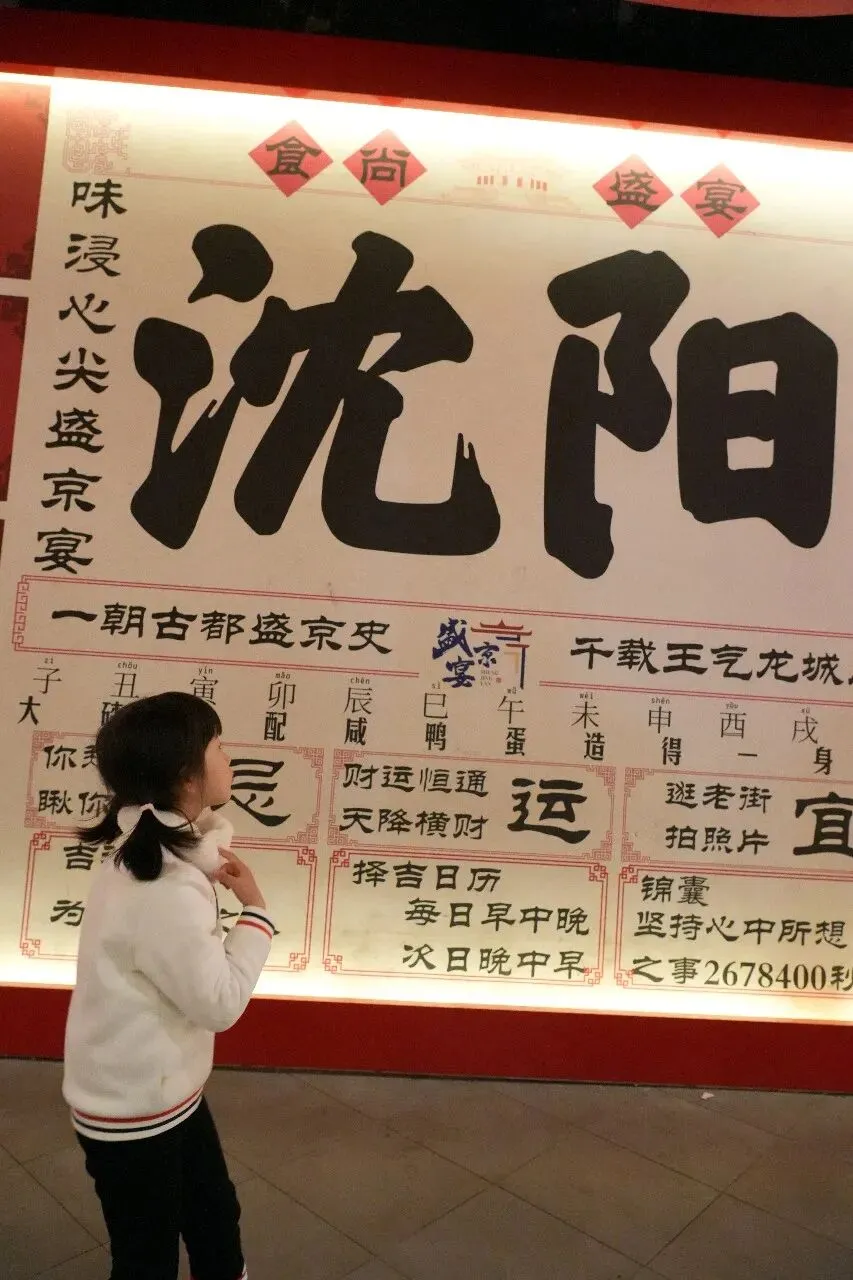 食尚 盛宴
味浸心尖盛京宴
沈阳
一朝古都盛京史
盛京宴
SHENG JING YAN
千载王气龙城
zǐ chǒu yín mǎo chén sì wǔ wèi shēn yǒu xū
子 丑 寅 卯 辰 巳 午 未 申 酉 戌
大 配 咸 鸭 蛋 造 得 一 身
你
瞅你
忌
财运恒通
天降横财
运
逛老街
拍照片
宜
吉
为
择吉日历
每日早中晚
次日晚中早
锦囊
坚持心中所想
之事2678400秒